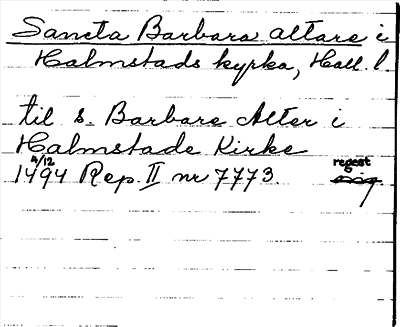 Sancta Barbara altare i
Halmstads kyrka, Hall. l.
til S. Barbare Alter i
Halmstade Kirke
4/12
1494 Rep. II nr 7773. regest